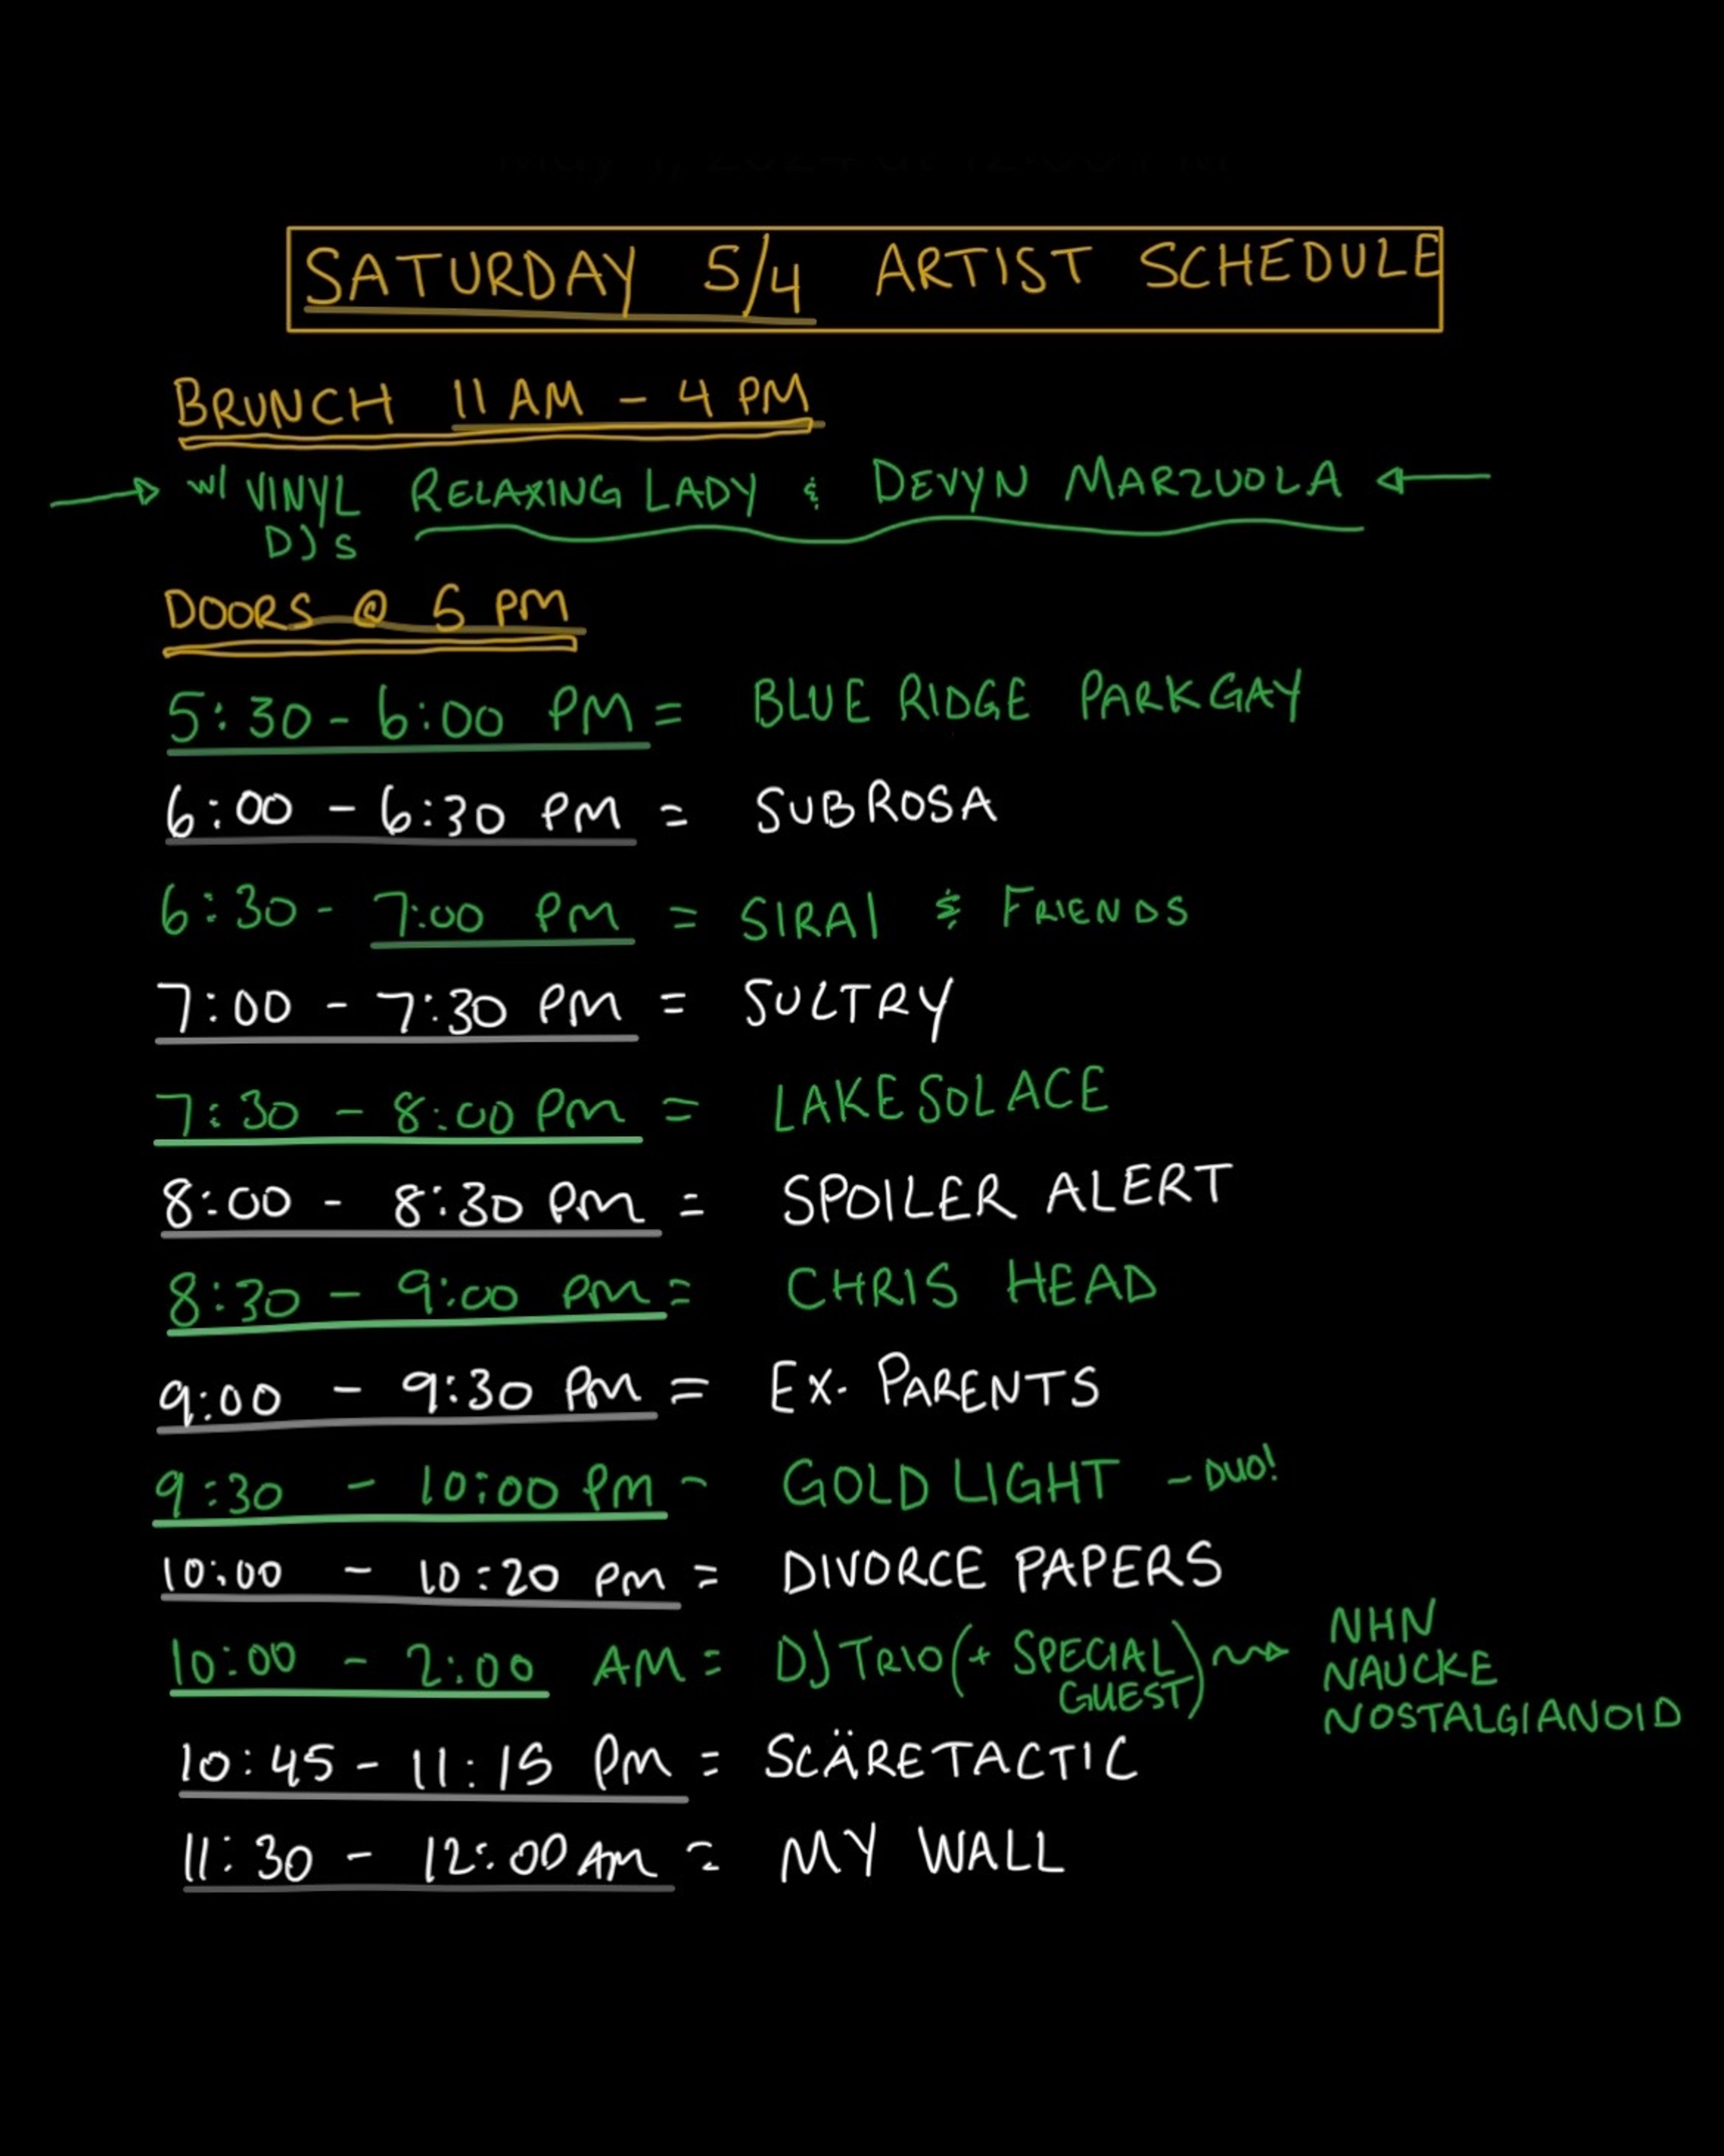 SATURDAY 5/4 ARTIST SCHEDULE
BRUNCH 11 AM - 4 PM
w/ VINYL DJs RELAXING LADY & DEVYN MARZUOLA
DOORS @ 5 PM
5:30 - 6:00 PM = BLUE RIDGE PARKGAY
6:00 - 6:30 PM = SUBROSA
6:30 - 7:00 PM = SIRAI & FRIENDS
7:00 - 7:30 PM = SULTRY
7:30 - 8:00 PM = LAKE SOLACE
8:00 - 8:30 PM = SPOILER ALERT
8:30 - 9:00 PM = CHRIS HEAD
9:00 - 9:30 PM = EX-PARENTS
9:30 - 10:00 PM - GOLD LIGHT - DUO!
10:00 - 10:20 PM = DIVORCE PAPERS
10:00 - 2:00 AM = DJ TRIO (+ SPECIAL GUEST) NHN
NAUCKE
NOSTALGIANOID
10:45 - 11:15 PM = SCÄRETACTIC
11:30 - 12:00 AM = MY WALL